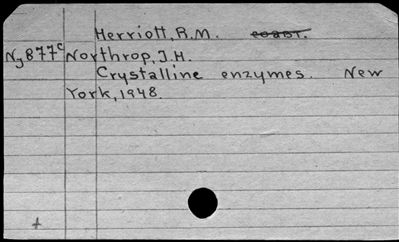 Herriott, R.M.
Nj877c Northrop, J.H.
Crystalline enzymes. New
York, 1948.